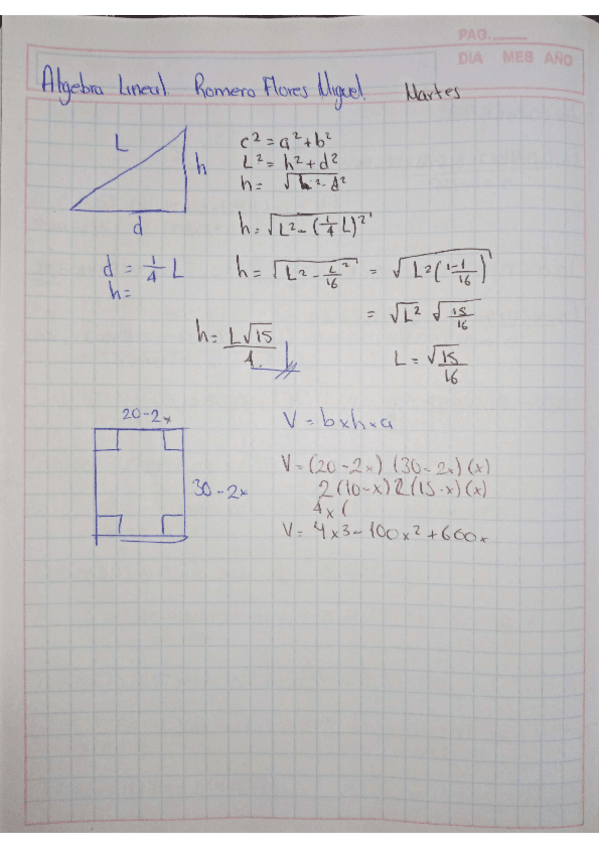 PAG.
DIA MES AÑO
Algebra Lineal. Romero Flores Miguel. Martes
L
h
d
c² = a² + b²
L² = h² + d²
h = √h² - d²
h = √L² - (1/4 L)²
d = 1/4 L
h =
h = √L² - L²/16 = √L²(1-1/16)
= √L² √15/16
h = L√15/4
L = √15/16
20-2x
30-2x
V = b x h x a
V = (20-2x) (30-2x) (x)
2(10-x) 2(15-x) (x)
4x (
V = 4x3 - 100x² + 600x